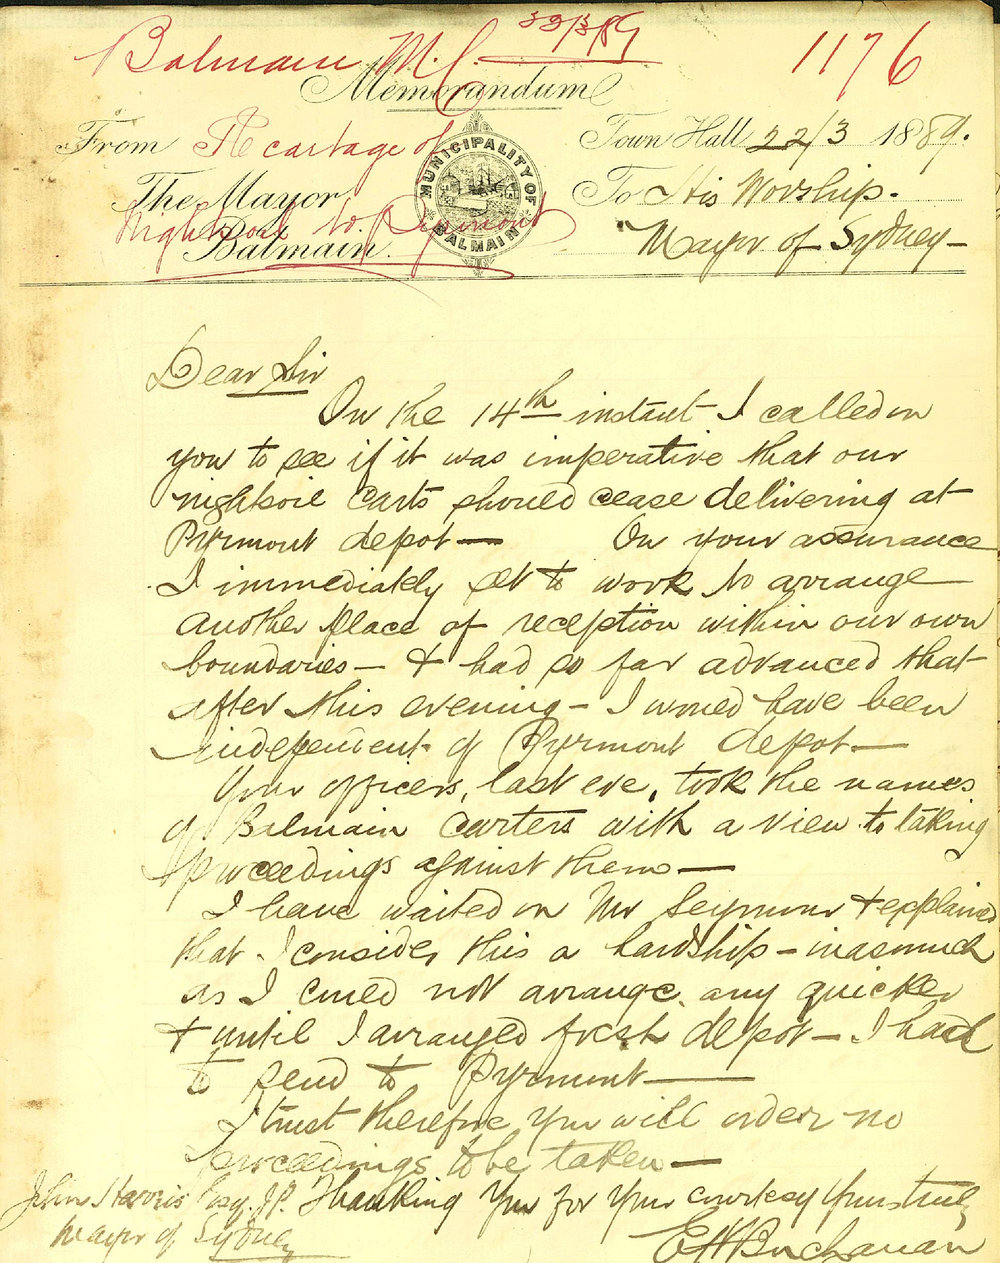 Balmain M.C. 22/3/89
1176
Memorandum
From
The Mayor
Balmain.
Re cartage of
Nightsoil to Pyrmont
MUNICIPALITY OF BALMAIN
Town Hall 22/3 1889.
To His Worship.
Mayor of Sydney—
Dear Sir
On the 14th instant— I called on
you to see if it was imperative that our
nightsoil carts should cease delivering at
Pyrmont depot— On your assurance
I immediately set to work to arrange
another place of reception within our own
boundaries— & had so far advanced that
after this evening— I would have been
independent of Pyrmont depot—
Your officers, last eve, took the names
of Balmain carters with a view to taking
proceedings against them—
I have waited on Mr Seymour & explained
that I consider this a hardship— inasmuch
as I could not arrange any quicker
& until I arranged fresh depot— I had
to send to Pyrmont—
I trust therefore you will order no
proceedings to be taken—
Thanking you for your courtesy Yours truly
E H Buchanan
John Harris Esq. J.P.
Mayor of Sydney